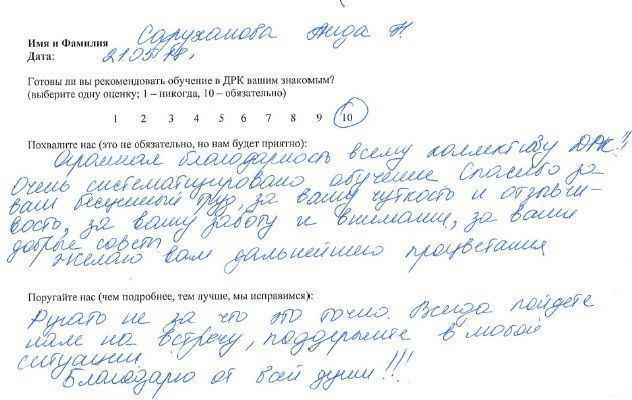 Имя и Фамилия Саруханова Аида Н.
Дата: 21.05.18,
Готовы ли вы рекомендовать обучение в ДРК вашим знакомым?
(выберите одну оценку; 1 – никогда, 10 – обязательно)
1 2 3 4 5 6 7 8 9 10
Похвалите нас (это не обязательно, но нам будет приятно):
Огромная благодарность всему коллективу ДРК!!
Очень систематизировано обучение Спасибо за
ваш бесценный труд, за вашу чуткость и отзывчи-
вость, за вашу заботу и внимание, за ваши
добрые советы
Желаю вам дальнейшего процветания
Поругайте нас (чем подробнее, тем лучше, мы исправимся):
Ругать не за что это точно. Всегда пойдете
нам на встречу, поддержите в любой
ситуации.
Благодарю от всей души!!!